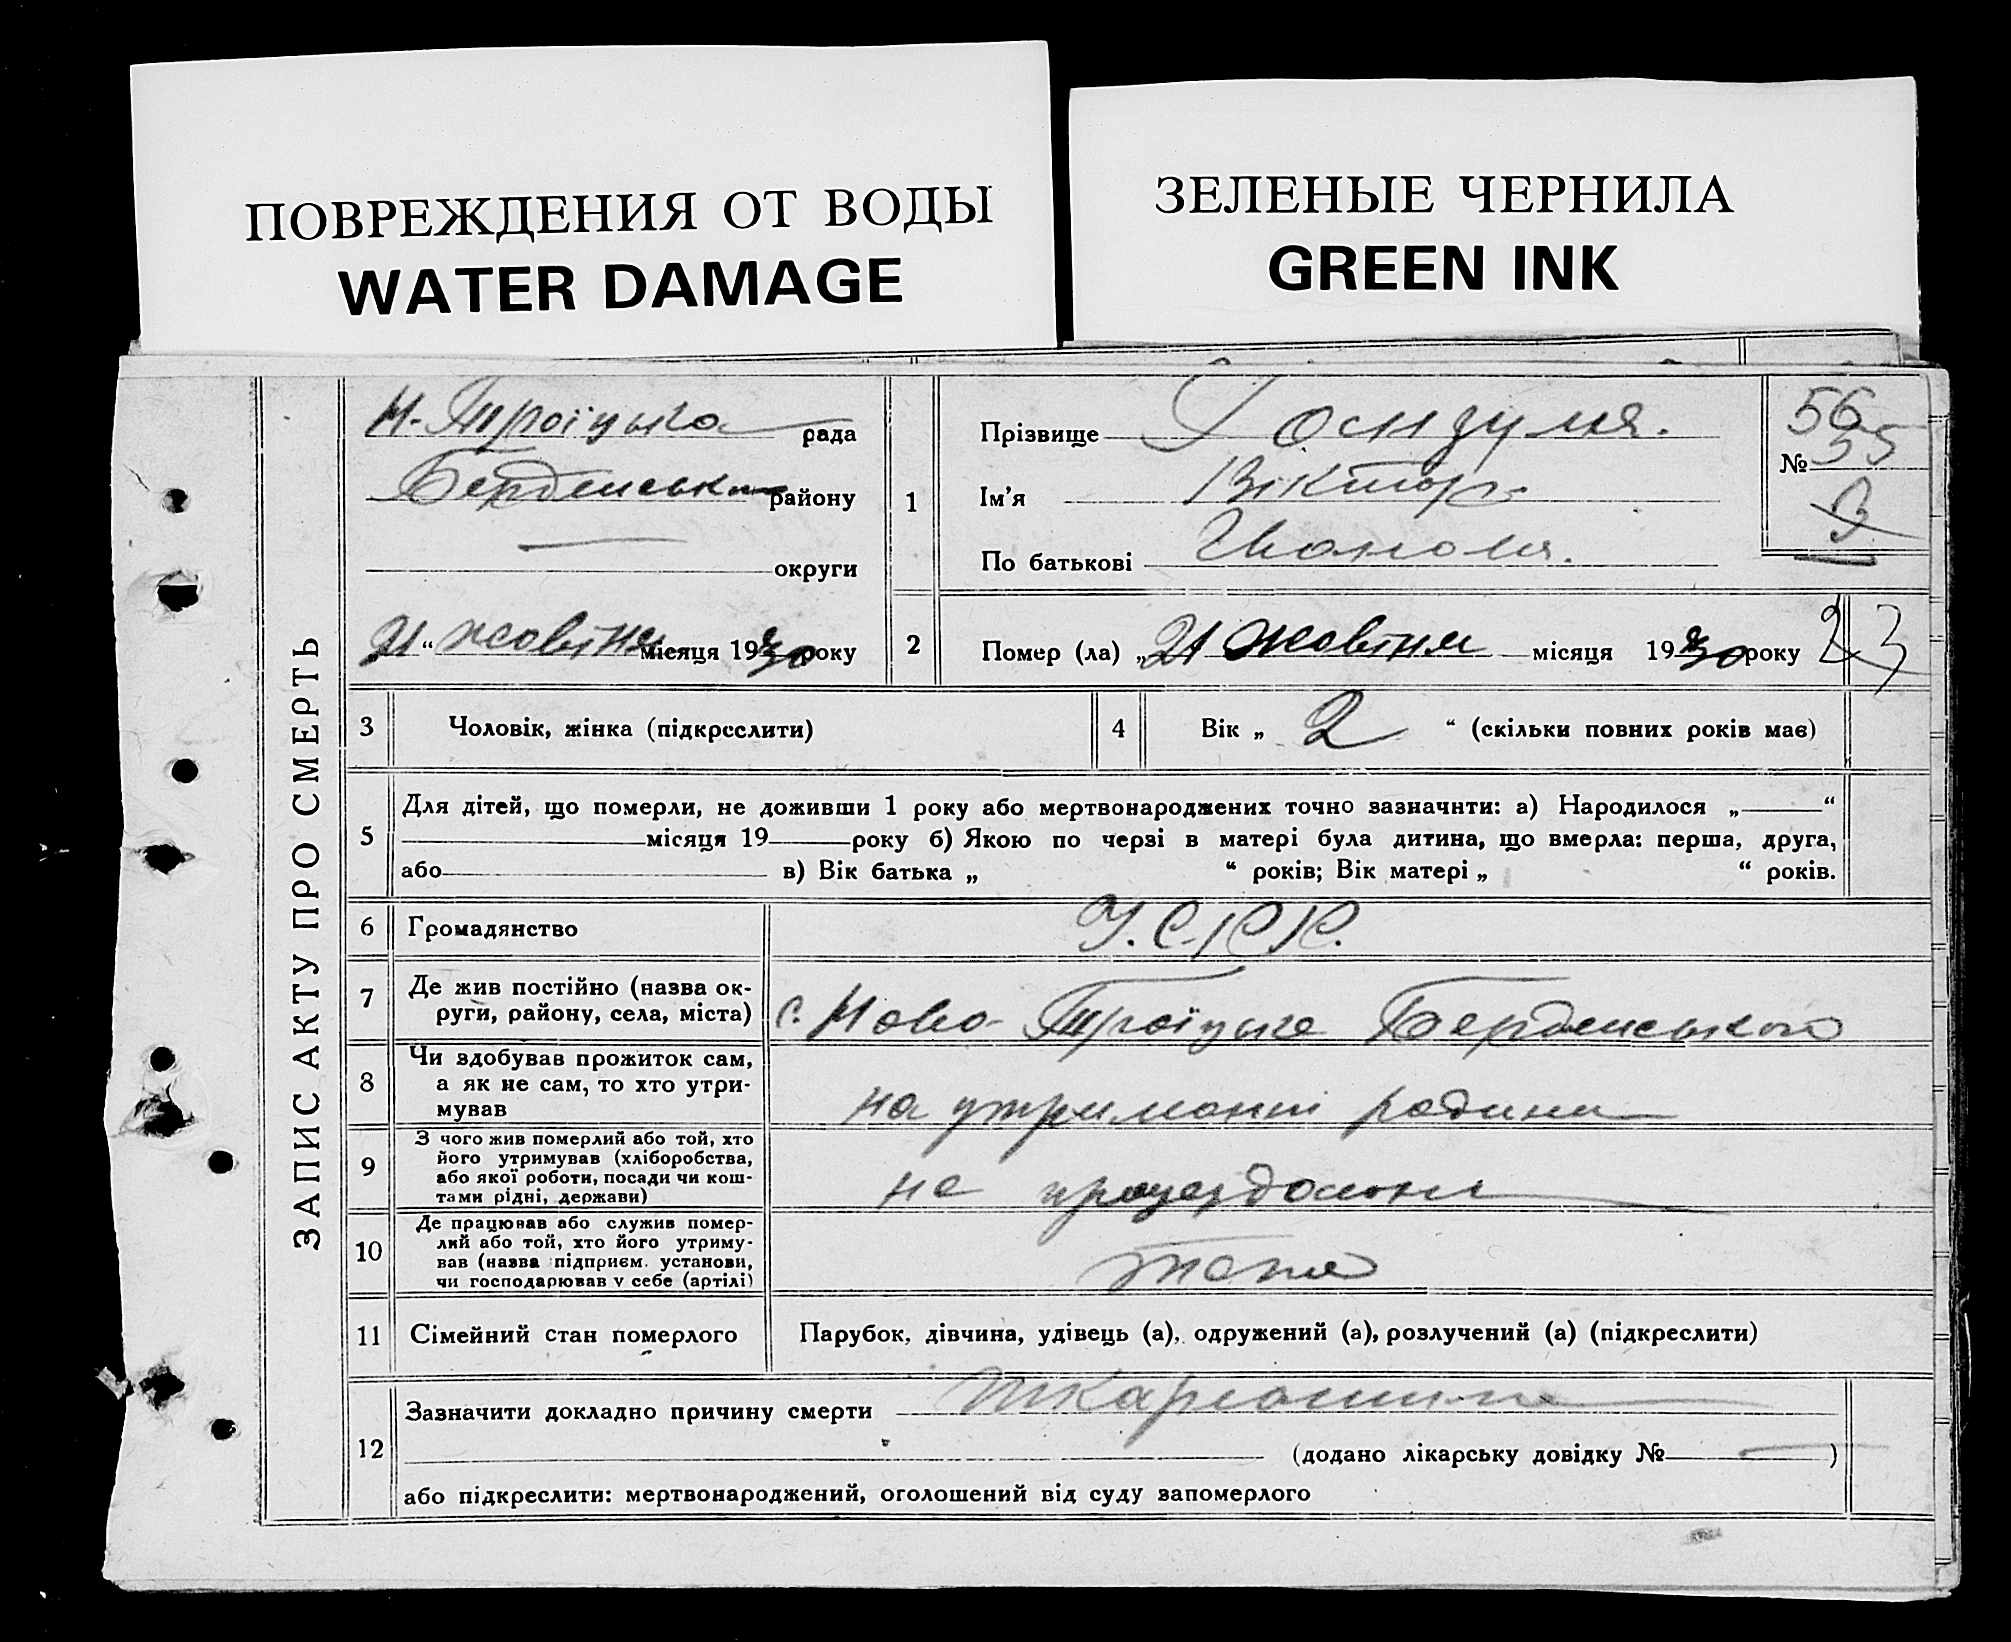 ПОВРЕЖДЕНИЯ ОТ ВОДЫ
WATER DAMAGE
ЗЕЛЕНЫЕ ЧЕРНИЛА
GREEN INK
ЗАПИС АКТУ ПРО СМЕРТЬ
Н-Троїцька рада
Берденськ району
округи
21 " жовтня місяця 1930 року
1
Прізвище
Ім'я Віктор
По батькові
№ 56
35
2 Помер (ла) „ 21 жовтня місяця 1930 року 23
3 Чоловік, жінка (підкреслити)
4 Вік „ 2 " (скільки повних років має)
5 Для дітей, що померли, не доживши 1 року або мертвонароджених точно зазначити: а) Народилося „ "
місяця 19 року б) Якою по черзі в матері була дитина, що вмерла: перша, друга,
або в) Вік батька „ " років; Вік матері „ " років.
6 Громадянство У.С.Р.Р.
7 Де жив постійно (назва ок-
руги, району, села, міста) с. Ново-Троїцьке Берденського
8 Чи здобував прожиток сам,
а як не сам, то хто утри-
мував на утриманні родини
9 З чого жив померлий або той, хто
його утримував (хліборобства,
або якої роботи, посади чи кош-
тами рідні, держави) не
10 Де працював або служив помер-
лий або той, хто його утриму-
вав (назва підприєм. установи,
чи господарював у себе (артілі)
11 Сімейний стан померлого Парубок, дівчина, удівець (а), одружений (а), розлучений (а) (підкреслити)
12 Зазначити докладно причину смерти шкарлатина
(додано лікарську довідку № )
або підкреслити: мертвонароджений, оголошений від суду запомерлого